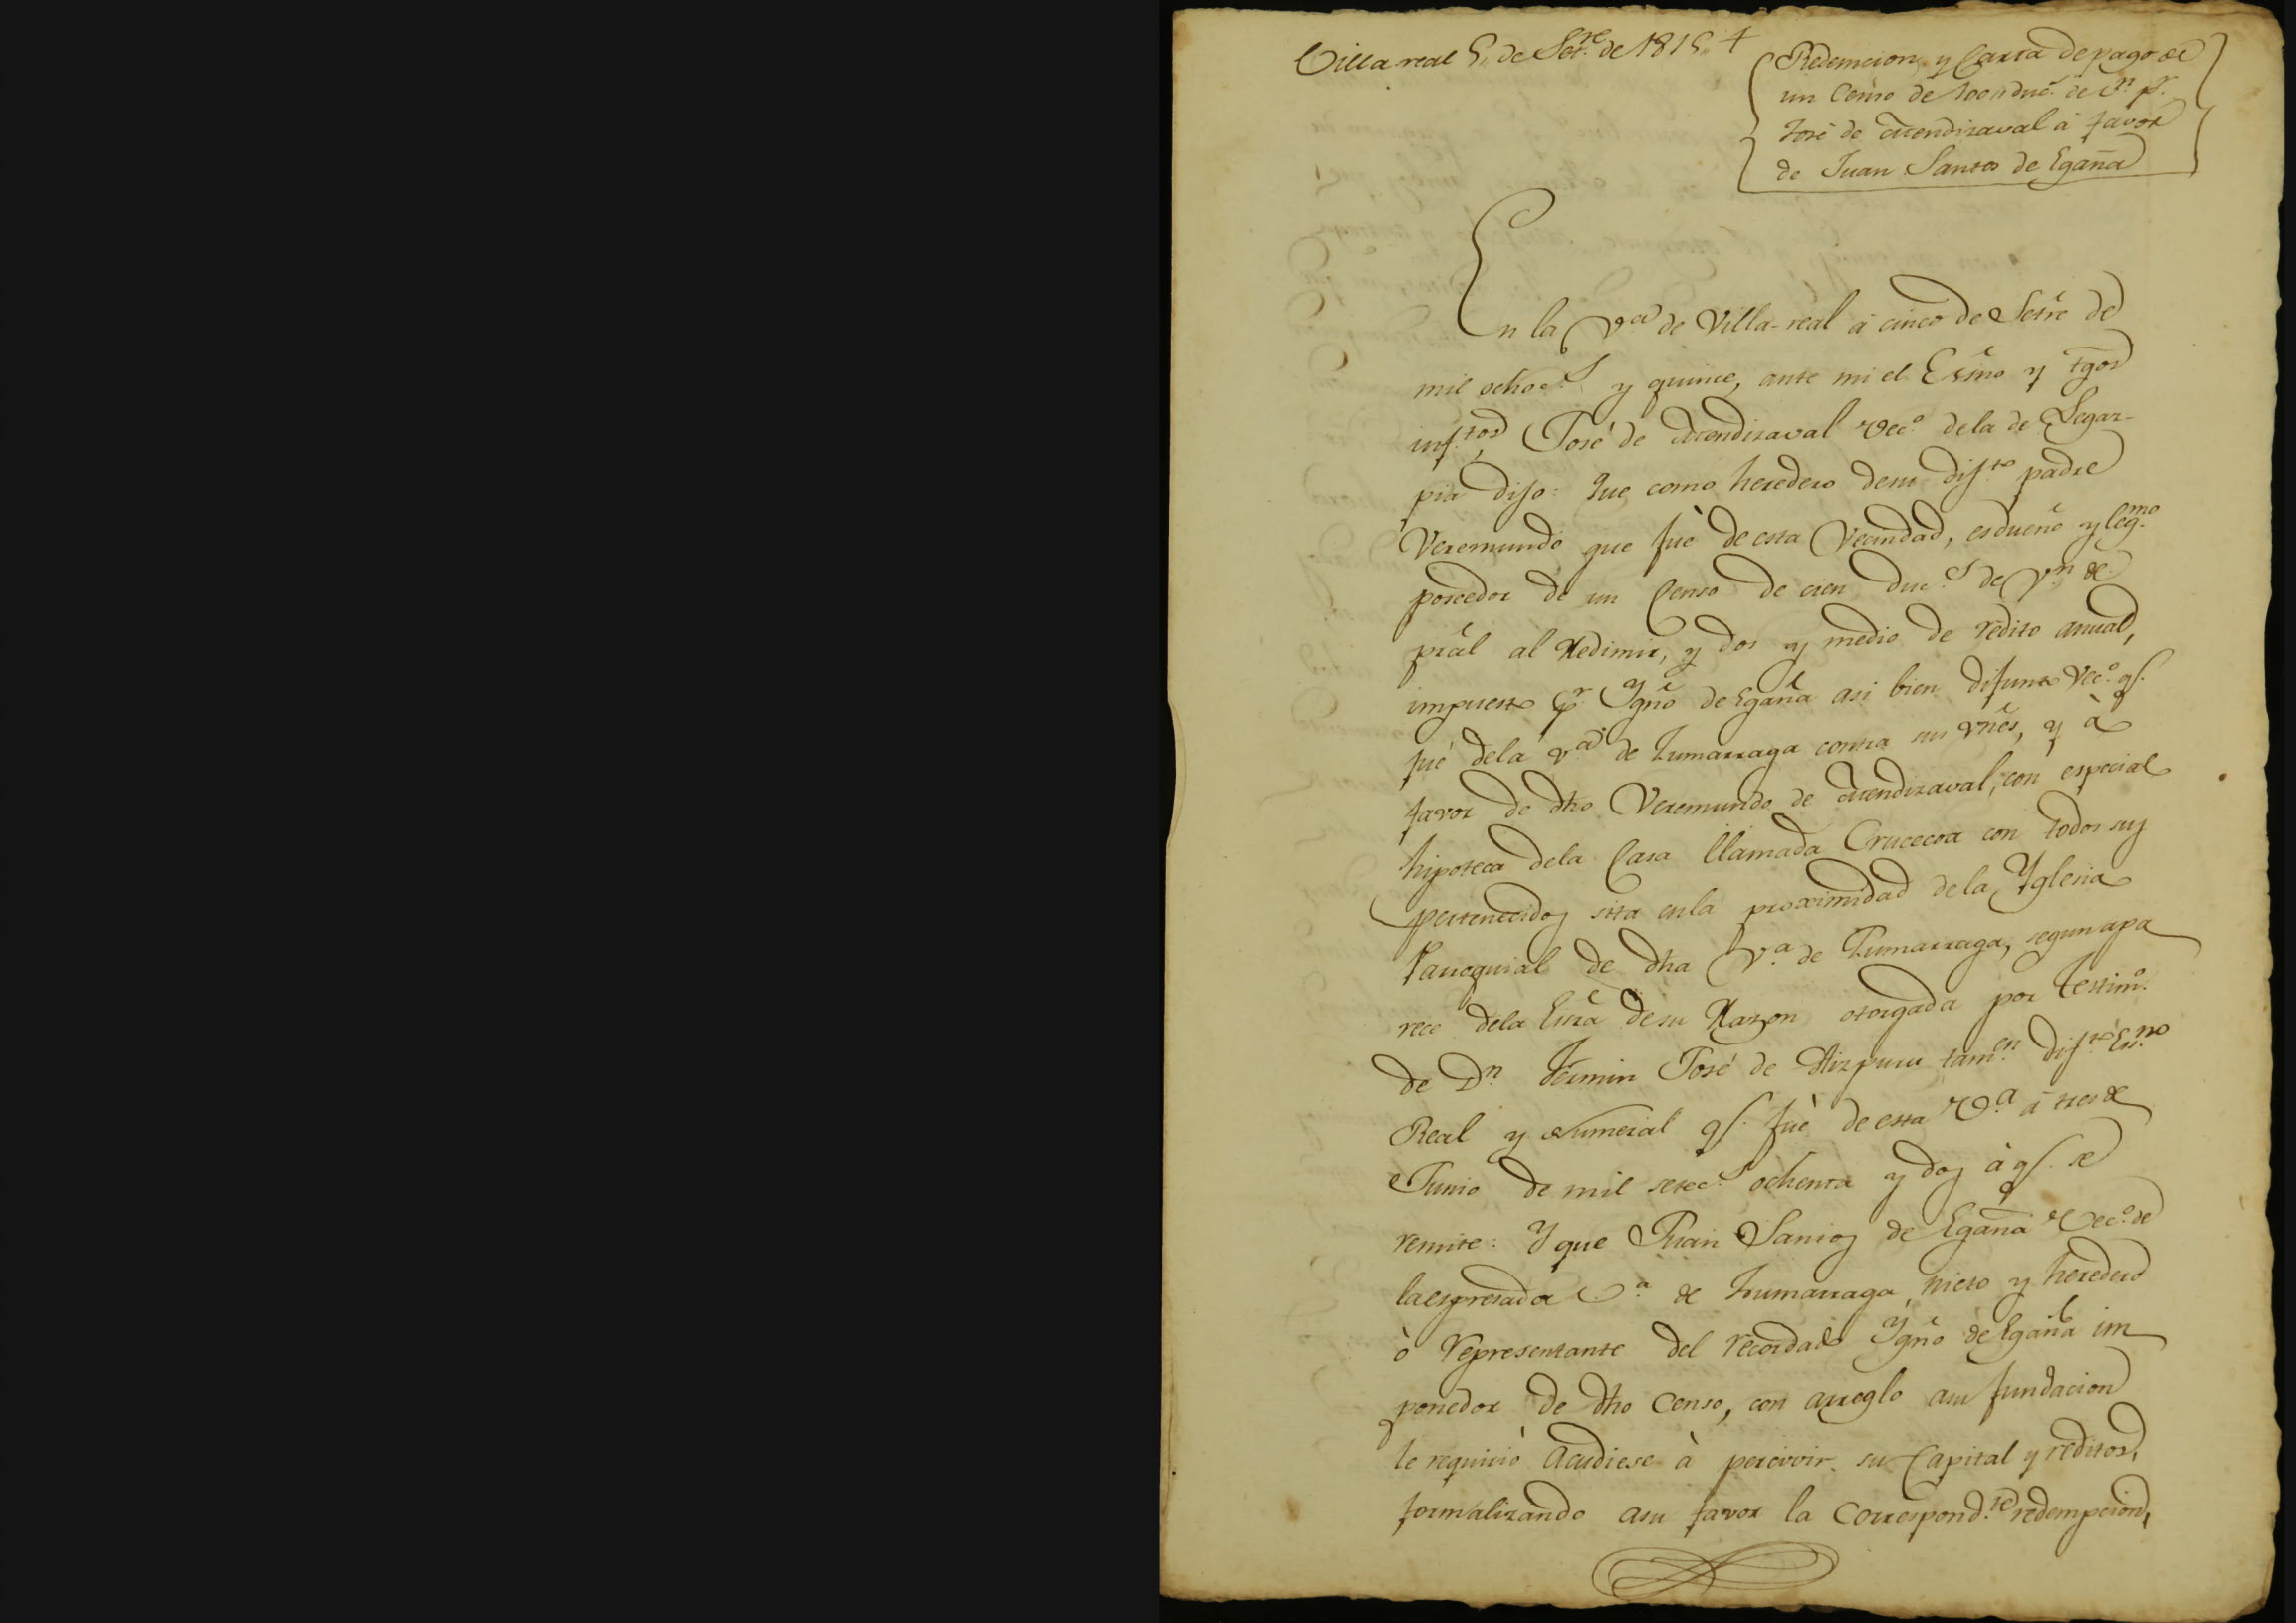 Villa real 5,, de Set.re de 1815,, +
Redemcion, y Carta de pago de
un Censo de 100,, duc.s de v.n p.r
José de Mendizaval á favor
de Juan Santos de Egaña
En la V.a de Villa-real á cinco de Setre de
mil ochoc.s y quince, ante mi el Esno y tgos
inf.tos José de Mendizaval Vec.o de la de Legaz-
pia dijo: Que como heredero de su dif.to padre
Veremundo que fué de esta Vecindad, es dueño y leg.mo
poseedor de un Censo de cien duc.s de v.n de
pral al Redimir, y dos y medio de redito anual,
impuesto p.r Ygno de Egaña asi bien difunto Vec.o q.e
fué de la v.a de Zumarraga contra sus vnes, y à
favor de dho Veremundo de Mendizaval, con especial
hipoteca de la Casa llamada Crucecoa con todos sus
pertenecidos sita en la proximidad de la Yglesia
Parroquial de dha V.a de Zumarraga, segun apa
rece de la Esra de su Razon otorgada por testim.o
de D.n Fermin José de Aizpuru tam.en dif.to Es.no
Real y Numeral q.e fué de esta V.a á tres de
Junio de mil setec.s ochenta y dos à q.e se
remite: Y que Juan Santos de Egaña Vec.o de
la espresada V.a de Zumarraga, nieto y heredero
ò representante del recordado Ygno de Egaña im
ponedor de dho Censo, con arreglo a su fundacion
le requirió acudiese à percivir su Capital y reditos,
formalizando a su favor la correspond.te redempcion,